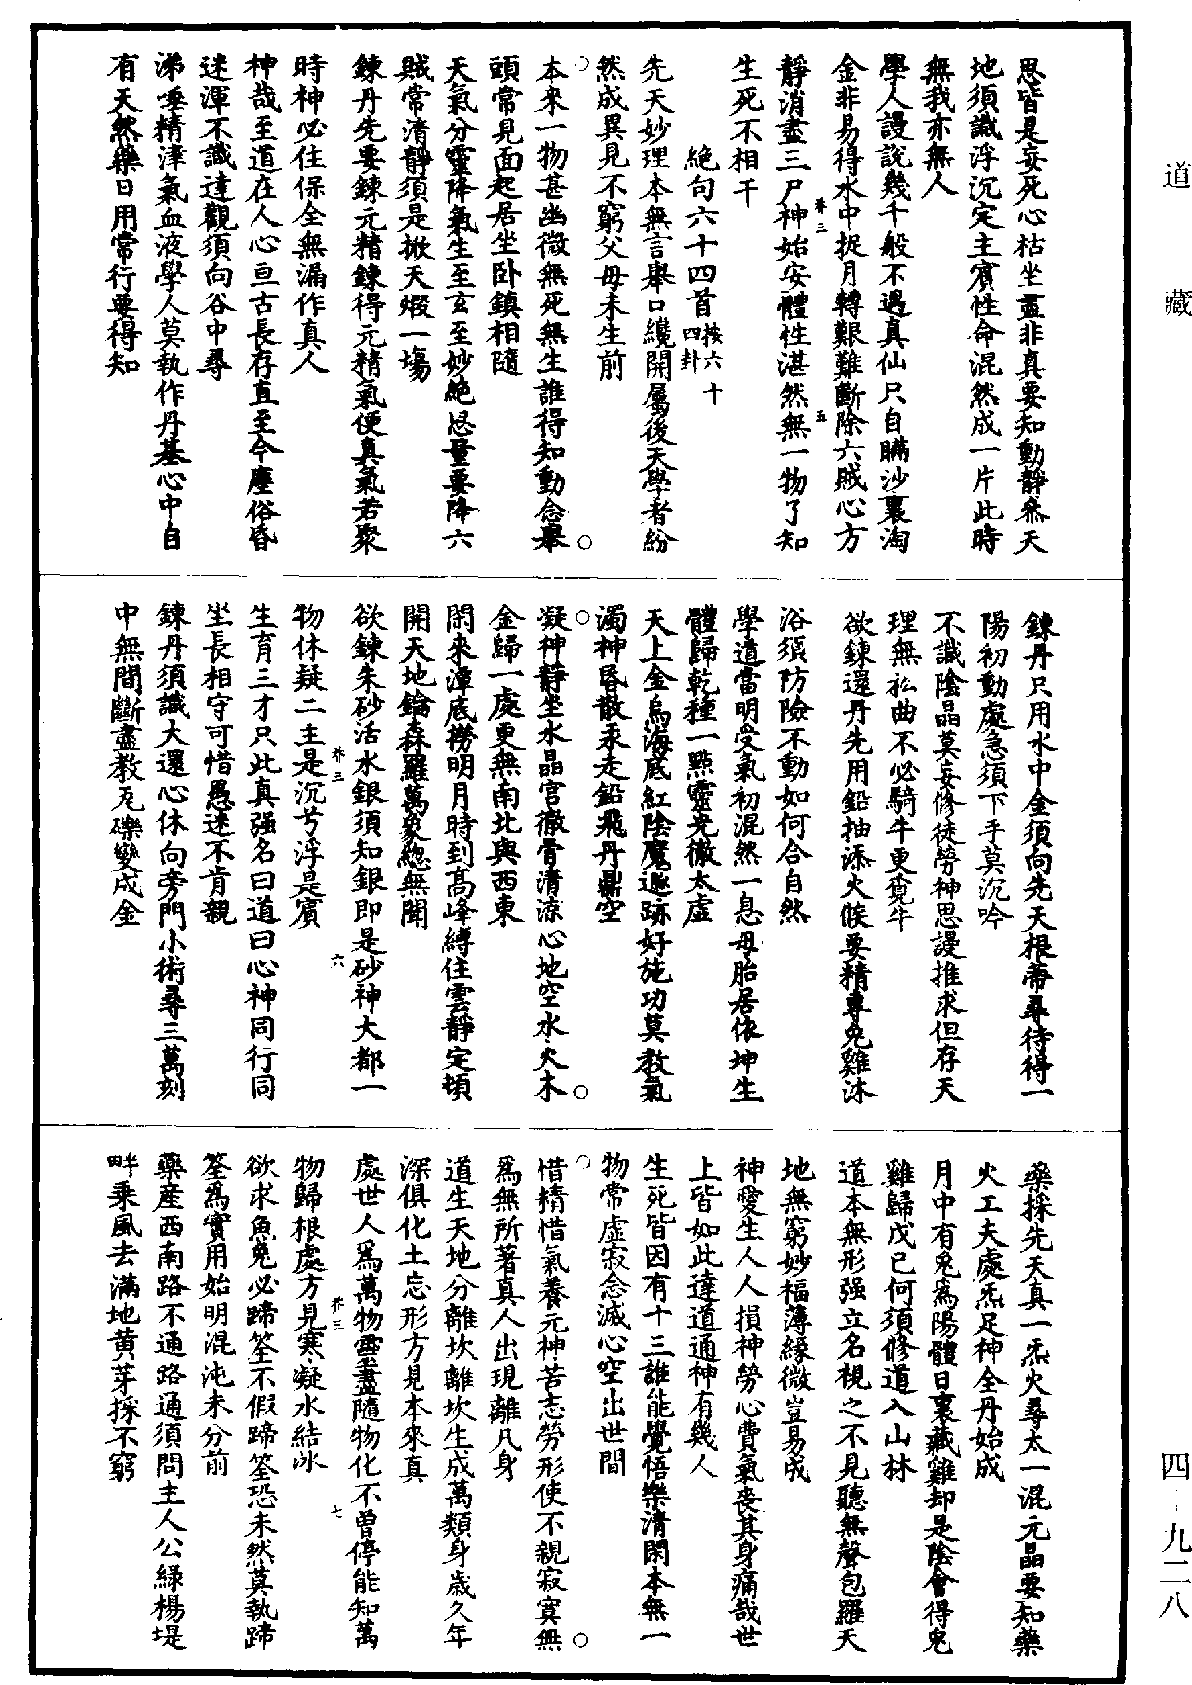 道藏
四·九二八
思皆是妄死心枯坐盡非真要知動靜無天
地須識浮沉定主賓性命混然成一片此時
無我亦無人
學人謾說幾千般不遇真仙只自瞞沙裏淘
金非易得水中捉月轉艱難斷除六賊心方
靜消盡三尸神始安體性湛然無一物了知
生死不相干
絕句六十四首按六十四卦
先天妙理本無言舉口纔開屬後天學者紛
然成異見不窮父母未生前
本來一物甚幽微無死無生誰得知動念舉
頭常見面起居坐臥鎮相隨
天氣分靈降氣生至玄至妙絕思量要降六
賊常清靜須是掀天煅一場
鍊丹先要鍊元精鍊得元精氣便真氣若聚
時神必住保全無漏作真人
神哉至道在人心亘古長存直至今塵俗昏
迷渾不識達觀須向谷中尋
涕唾精津氣血液學人莫執作丹基心中自
有天然藥日用常行要得知
鍊丹只用水中金須向先天根蒂尋待得一
陽初動處急須下手莫沉吟
不識陰晶莫妄修徒勞神思謾推求但存天
理無私曲不必騎牛更覓牛
欲鍊還丹先用鉛抽添火候要精專兔雞沐
浴須防險不動如何合自然
學道當明受氣初混然一息母胎居依坤生
體歸乾種一點靈光徹太虛
天上金烏海底紅陰魔遯跡好施功莫教氣
濁神昏散汞走鉛飛丹鼎空
凝神靜坐水晶宮徹骨清涼心地空水火木
金歸一處更無南北與西東
閑來潭底撈明月時到高峰縛住雲靜定頓
開天地鑰森羅萬象總無聞
欲鍊朱砂活水銀須知銀即是砂神大都一
物休疑二主是沉兮浮是賓
生育三才只此真強名曰道曰心神同行同
坐長相守可惜愚迷不肯親
鍊丹須識大還心休向旁門小術尋三萬刻
中無間斷盡教瓦礫變成金
藥採先天真一炁火尋太一混元晶要知藥
火工夫處炁足神全丹始成
月中有兔為陽體日裏藏雞却是陰會得兔
雞歸戊己何須修道入山林
道本無形强立名視之不見聽無聲包羅天
地無窮妙福薄緣微豈易成
神愛生人人損神勞心費氣喪其身痛哉世
上皆如此達道通神有幾人
生死皆因有十三誰能覺悟樂清閑本無一
物常虛寂念滅心空出世間
惜精惜氣養元神苦志勞形使不親寂寞無
為無所著真人出現離凡身
道生天地分離坎離坎生成萬類身歲久年
深俱化土忘形方見本來真
處世人為萬物靈盡隨物化不曾停能知萬
物歸根處方見寒凝水結冰
欲求魚兔必蹄筌不假蹄筌恐未然莫執蹄
筌為實用始明混沌未分前
藥産西南路不通路通須問主人公綠楊堤
畔乘風去滿地黃芽採不窮